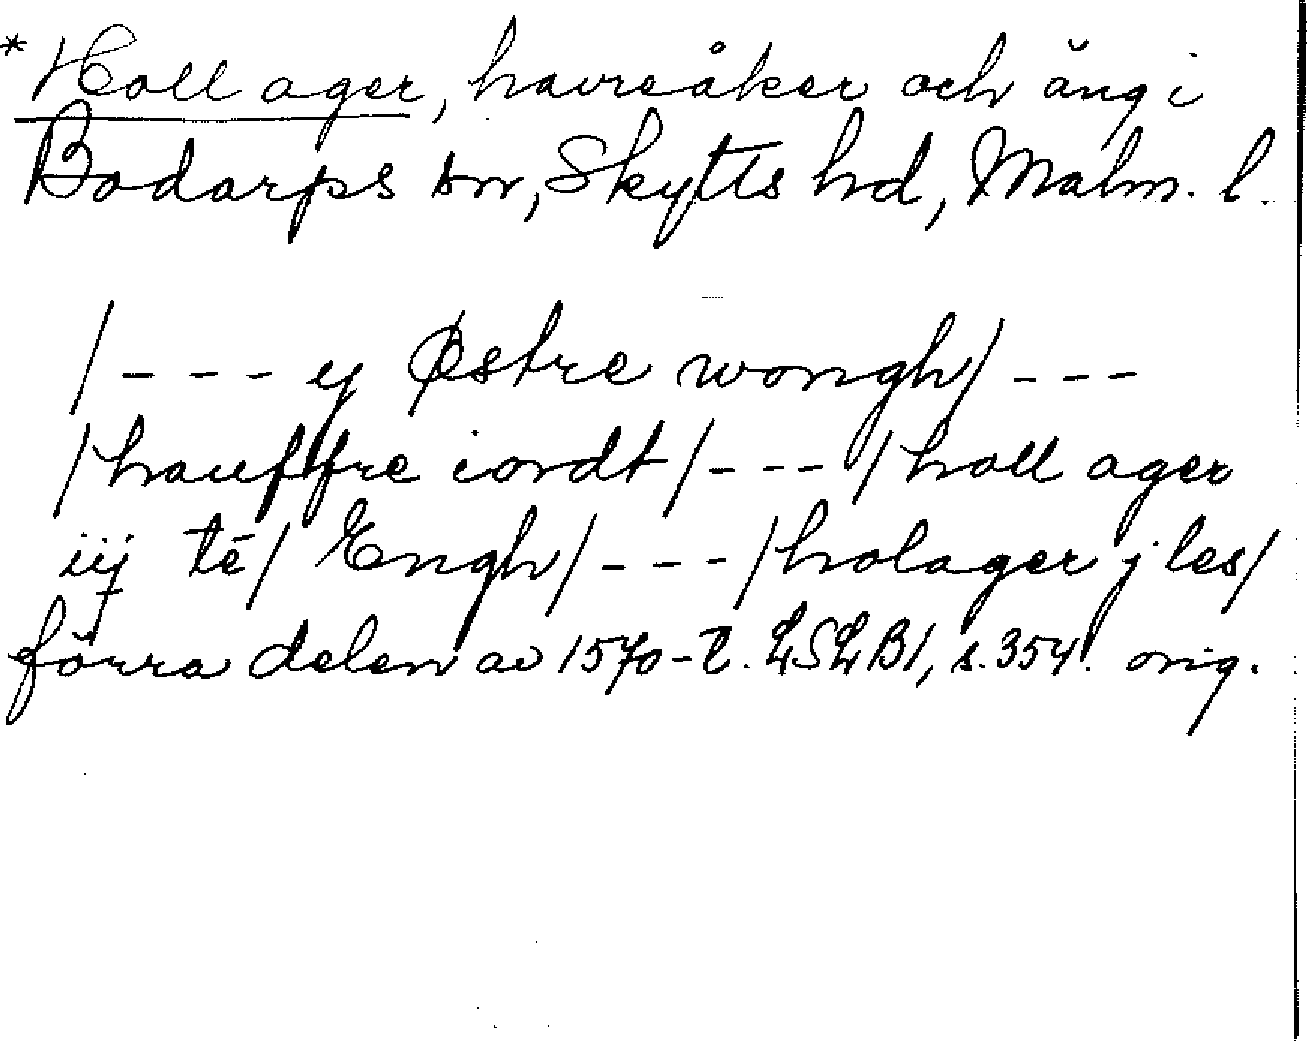 *Holl ager, havreåker och äng i
Bodarps sn, Skytts hd, Malm. l.
/--- y Østre wongh/---
/hauffre iordt/---/holl ager
iij tē/ Engh/---/holager j les/
förra delen av 1570-t. LSLB1, s. 354. orig.